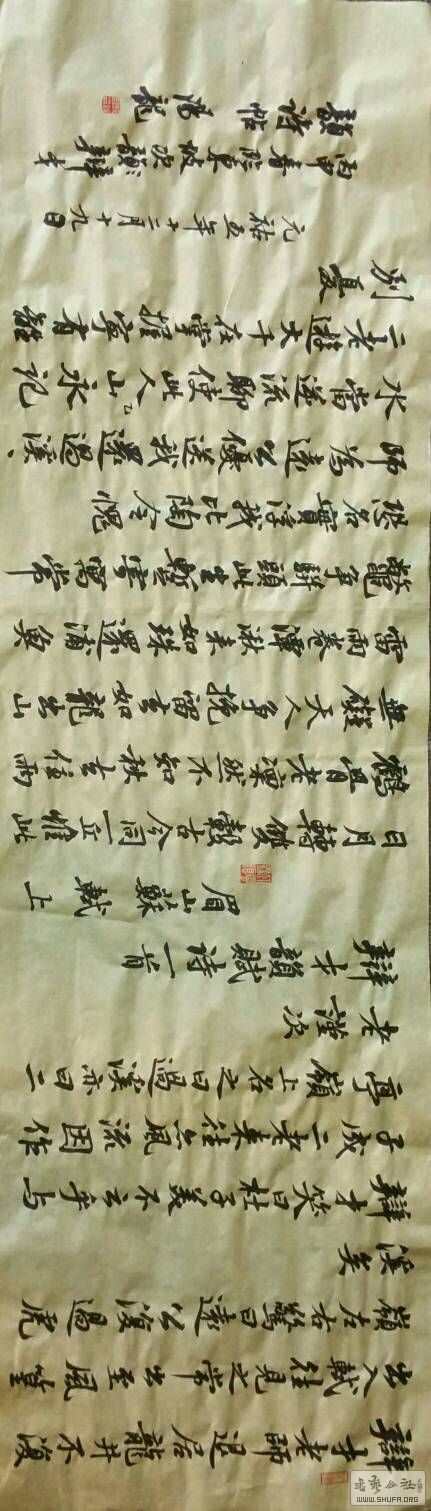 辯才老師退居龍井不復
出入軾往見之常出至風篁
嶺左右驚曰遠公復過虎
溪矣
辯才笑曰杜子美不云乎與
子成二老來往亦風流因作
亭嶺上名之曰過溪亦曰二
老謹次
辯才韻賦詩一首
眉山蘇軾上
日月轉雙轂古今同一丘惟此
鶴骨老凜然不知秋去住兩
無礙天人爭挽留去如龍出山
雷雨卷潭湫來如珠還浦魚
鱉爭駢頭此生暫寄寓常
恐名實浮我比陶令愧
師為遠公優送我還過溪
水當逆流聊使此人山永記
二老遊大千在掌握寧有離
別憂
元祐五年十二月十九日
丙申春臨東坡次韻辯才
韻詩帖 龍
WWW.SHUFA.ORG